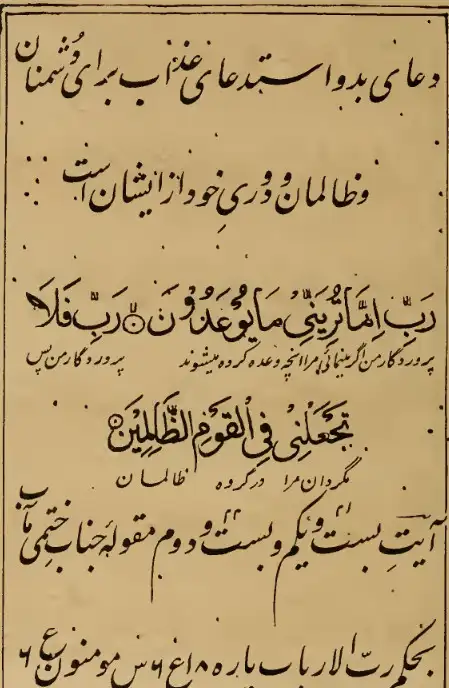 دعای بد و استدعای عذاب برای دشمنان
و ظالمان و دوریِ خود از ایشان است
رَبِّ اِمَّا تُرِیَنِّیْ مَا یُوْعَدُوْنَ ۞ رَبِّ فَلَا
پروردگار من اگر بنمائی مرا انچه وعده کرده میشوند پروردگار من پس
تَجْعَلْنِیْ فِی الْقَوْمِ الظَّالِمِیْنَ ۞
مگردان مرا در گروه ظالمان
آیتِ بست و یکم ۲۱ و بست و دوم ۲۲ مقولهٔ جناب ختمی مآب
بحکم ربّ الارباب پاره ۱۸ ع ۶ س مومنون ع ۶